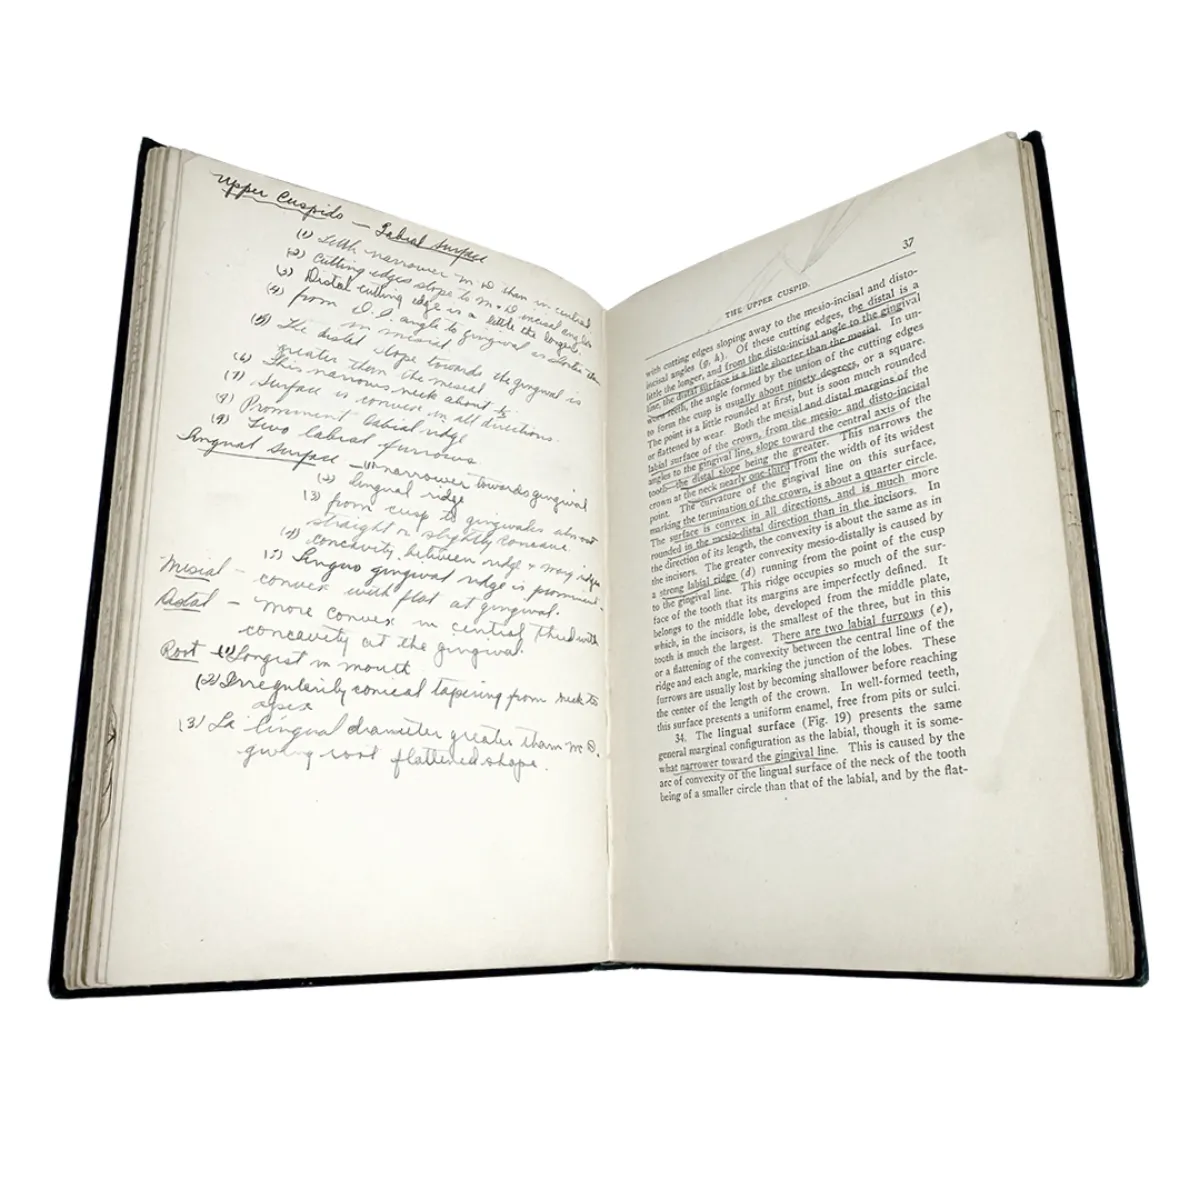 Upper Cuspids — Labial Surface
(1) Little narrower m D than in central
(2) Cutting edges slope to m. D incisal angles
(3) Distal cutting edge is a little the longest.
(4) from D. I. angle to gingival is shorter than
in mesial
(5) The distal slope towards the gingival is
greater than the mesial
(6) This narrows neck about ⅓
(7) Surface is convex in all directions.
(8) Prominent labial ridge
(9) Two labial furrows.
Lingual Surface — (1) narrower towards gingival
(2) Lingual ridge
(3) from cusp to gingival is almost
straight or slightly concave.
(4) concavity between ridge & marg ridges
(5) Linguo gingival ridge is prominent.
Mesial — convex with flat at gingival.
Distal — more convex in central third with
concavity at the gingival.
Root — (1) Longest in mouth
(2) Irregularily conical tapering from neck to
apex
(3) La lingual diameter greater than m D.
giving root flattened shape.
THE UPPER CUSPID. 37
with cutting edges sloping away to the mesio-incisal and disto-
incisal angles (g, h). Of these cutting edges, the distal is a
little the longer, and from the disto-incisal angle to the gingival
line, the distal surface is a little shorter than the mesial. In un-
worn teeth, the angle formed by the union of the cutting edges
to form the cusp is usually about ninety degrees, or a square.
The point is a little rounded at first, but is soon much rounded
or flattened by wear. Both the mesial and distal margins of the
labial surface of the crown, from the mesio- and disto-incisal
angles to the gingival line, slope toward the central axis of the
tooth—the distal slope being the greater. This narrows the
crown at the neck nearly one-third from the width of its widest
point. The curvature of the gingival line on this surface,
marking the termination of the crown, is about a quarter circle.
The surface is convex in all directions, and is much more
rounded in the mesio-distal direction than in the incisors. In
the direction of its length, the convexity is about the same as in
the incisors. The greater convexity mesio-distally is caused by
a strong labial ridge (d) running from the point of the cusp
to the gingival line. This ridge occupies so much of the sur-
face of the tooth that its margins are imperfectly defined. It
belongs to the middle lobe, developed from the middle plate,
which, in the incisors, is the smallest of the three, but in this
tooth is much the largest. There are two labial furrows (e),
or a flattening of the convexity between the central line of the
ridge and each angle, marking the junction of the lobes. These
furrows are usually lost by becoming shallower before reaching
the center of the length of the crown. In well-formed teeth,
this surface presents a uniform enamel, free from pits or sulci.
34. The lingual surface (Fig. 19) presents the same
general marginal configuration as the labial, though it is some-
what narrower toward the gingival line. This is caused by the
arc of convexity of the lingual surface of the neck of the tooth
being of a smaller circle than that of the labial, and by the flat-